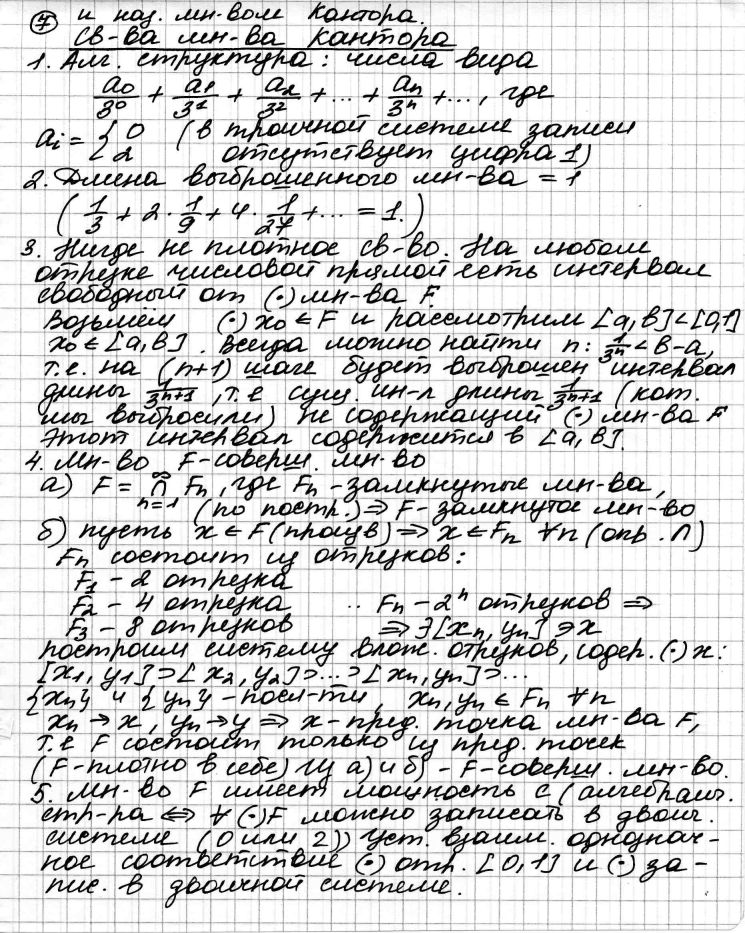 ⑦ и наз. мн-вом Кантора.
Св-ва мн-ва Кантора
1. Алг. структура: числа вида
a₀/3⁰ + a₁/3¹ + a₂/3² + ... + aₙ/3ⁿ + ..., где
aᵢ = { 0 (в троичной системе записи
2 отсутствует цифра 1)
2. Длина выброшенного мн-ва = 1
(1/3 + 2·1/9 + 4·1/27 + ... = 1.)
3. Нигде не плотное св-во. На любом
отрезке числовой прямой есть интервал
свободный от (·) мн-ва F.
Возьмём (·) x₀ ∈ F и рассмотрим [a,b] < [0,1]
x₀ ∈ [a,b]. Всегда можно найти n: 1/3ⁿ < b-a,
т.е. на (n+1) шаге будет выброшен интервал
длины 1/3ⁿ⁺¹, т.е сущ. ин-л длины 1/3ⁿ⁺¹ (кот.
мы выбросили) не содержащий (·) мн-ва F
Этот интервал содержится в [a,b].
4. Мн-во F-соверш. мн-во
а) F = ∞ ∩ n=1 Fₙ, где Fₙ - замкнутые мн-ва,
(по постр.) ⇒ F - замкнутое мн-во
б) пусть x ∈ F (произв) ⇒ x ∈ Fₙ ∀n (опр. ∩)
Fₙ состоит из отрезков:
F₁ - 2 отрезка
F₂ - 4 отрезка .. Fₙ - 2ⁿ отрезков ⇒
F₃ - 8 отрезков ⇒ ∃[xₙ, yₙ] ∋ x
построим систему влож. отрезков, содер. (·) x:
[x₁, y₁] ⊃ [x₂, y₂] ⊃ ... ⊃ [xₙ, yₙ] ⊃ ...
{xₙ} и {yₙ} - посл-ти, xₙ, yₙ ∈ Fₙ ∀n
xₙ → x, yₙ → y ⇒ x - пред. точка мн-ва F,
т.е F состоит только из пред. точек
(F - плотно в себе) Из а) и б) - F - соверш. мн-во.
5. Мн-во F имеет мощность c (алгебраич.
стр-ра ⇔ ∀ (·) F можно записать в двоич.
системе (0 или 2)) Уст. взаим. однознач-
ное соответствие (·) отр. [0,1] и (·) за-
пис. в двоичной системе.